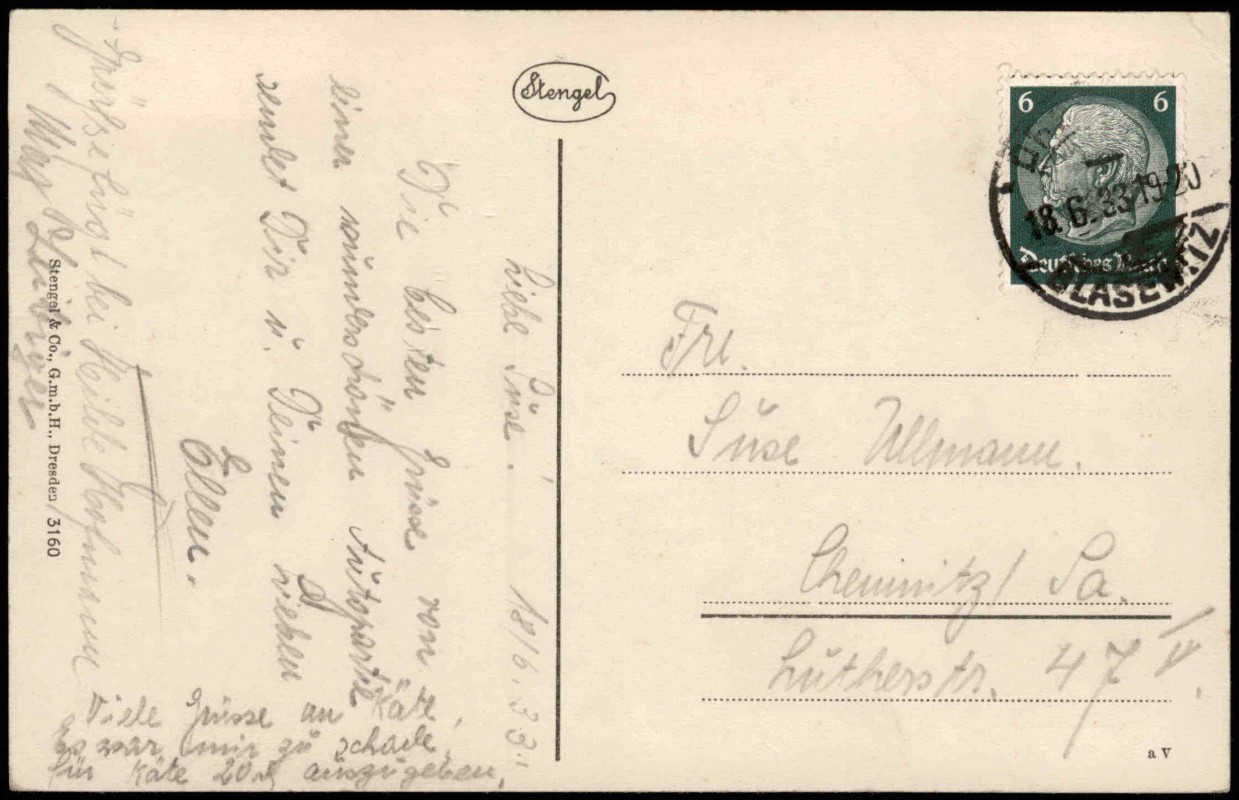 Stengel
Liebe Suse! 18/6.33.
Die besten Grüsse von
einer wunderschönen Autopartie
sendet Dir u. Deinen Lieben
Ellen.
Viele Grüsse an Käte,
es war mir zu schade,
für Käte 20 auszugeben.
bei Hofmann
Stengel & Co., G.m.b.H., Dresden 3160
6 6
Deutsches Reich
18.6.33.19-20
BLASEWITZ
Frl.
Suse Ullmann.
Chemnitz/Sa.
Lutherstr. 47 IV.
a V